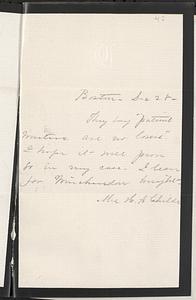 42
Boston Dec 28
They say "patient
waiters are no losers"
I hope it will prove
so in my case. I leave
for Winchendon tonight
Mr. H. A.